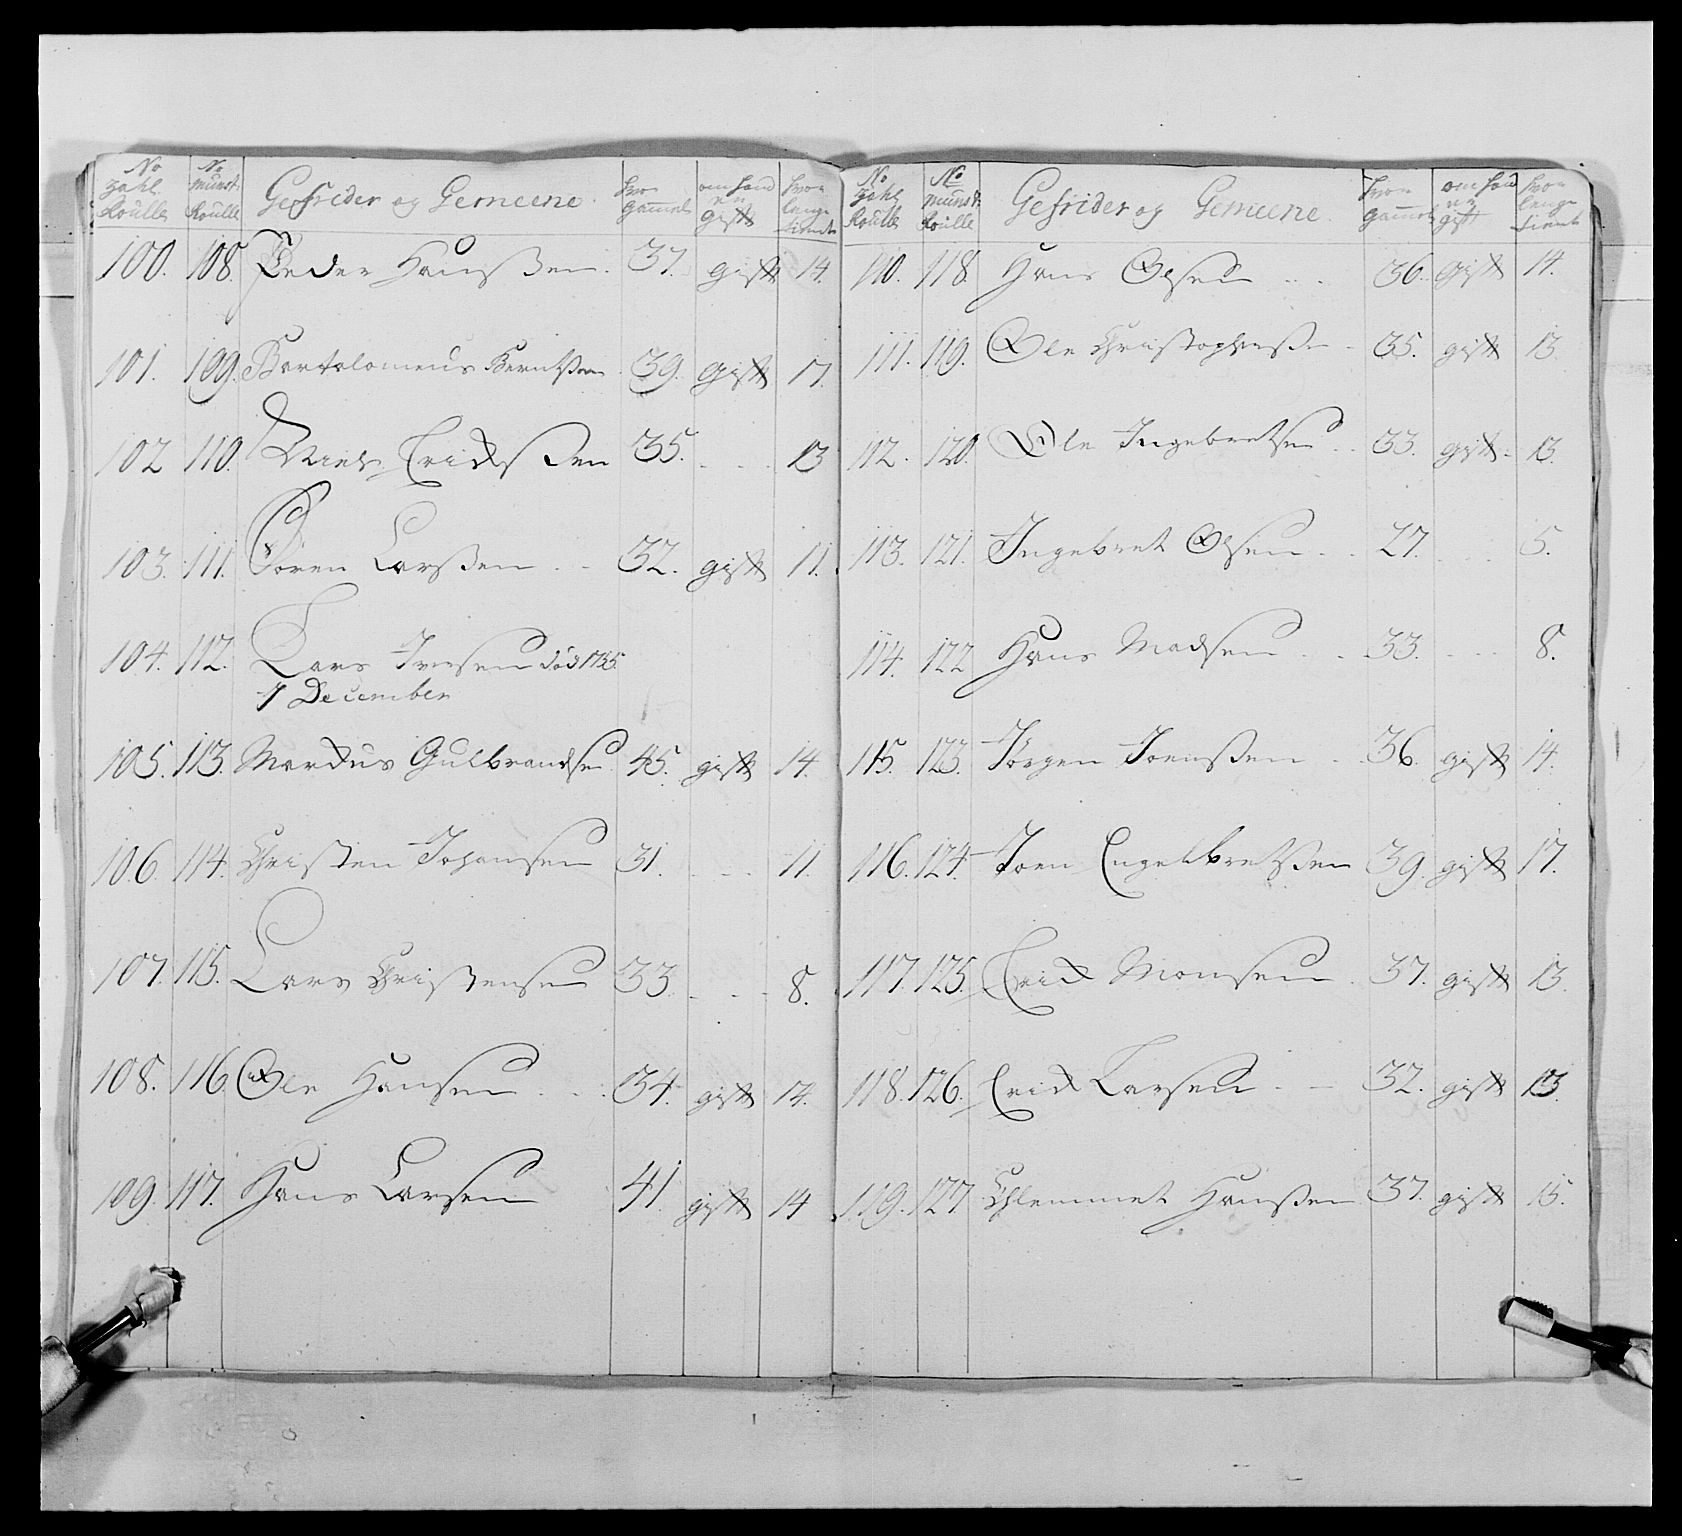 No Zahl Roulle | No Munst. Roulle | Gefrider og Gemeene. | hvor gammel | om hand er gift | hvor lenge tient
100. 108. Peder Hanssen. 37. gift 14.
101. 109. Bartolomeus Berntssen 39. gift 17.
102 110. Niels Erichssen 35. - - - 13
103. 111. Sören Larssen - - 32. gift 11.
104. 112. Lars Iversen död 1755.
7 December
105. 113. Marcus Gulbrandsen 45. gift 14.
106. 114. Christen Johansen 31. - - - 11
107. 115. Lars Christensen 33 - - - 8.
108. 116 Ole Hansen - - 34. gift 14.
109. 117. Hans Larsen 41. gift 14
No Zahl Roulle | No Munst. Roulle | Gefrider og Gemeene. | hvor gammel | om hand er gift | hvor lenge tient
110. 118. Hans Olsen - - 36. gift 14.
111. 119. Ole Christophersen - 35. gift 13.
112. 120. Ole Ingebretsen - - 33. gift - 13.
113. 121. Ingebret Olsen - - 27. - - 5.
114. 122 Hans Madsen - - 33. - - - 8.
115. 123. Jörgen Joenssen - 36. gift 14.
116. 124. Joen Engelbretssen 39. gift 17.
117. 125. Erich Monsen - 37. gift 13.
118. 126. Erich Larsen - - 32. gift 13.
119. 127 Chlemmet Hanssen 37. gift 15.